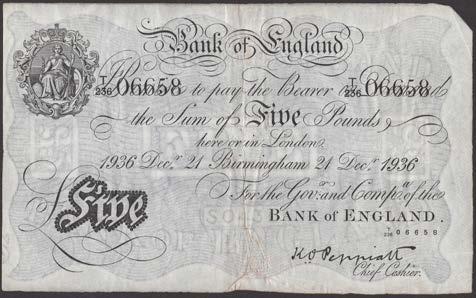 Bank of England
T/236 06658 Promise to pay the Bearer on Demand T/236 06658
the Sum of Five Pounds
here or in London
1936 Decr. 21 Birmingham 21 Decr. 1936
For the Govr. and Compa. of the
£Five BANK OF ENGLAND.
T/236 06658
K.O. Peppiatt
Chief Cashier.